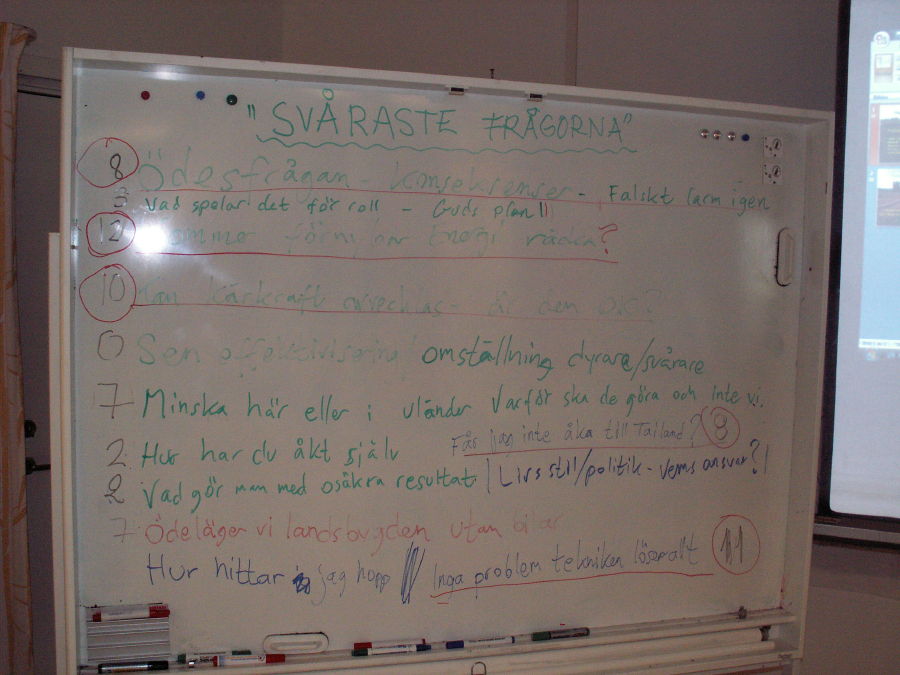 "SVÅRASTE FRÅGORNA"
8 Ödesfrågan - konsekvenser - Falskt larm igen
3 Vad spelar det för roll - Guds plan
12 Kommer förnybar Energi räcka?
10 Kan kärkraft avvecklas - är den OK?
0 Sen effektivisering omställning dyrare/svårare
7 Minska här eller i uländer Varför ska de göra och inte vi.
2 Hur har du åkt själv Får jag inte åka till Tailand? 8
2 Vad gör man med osäkra resultat. | Livsstil/politik - vems ansvar? |
7 Ödeläger vi landsbygden utan bilar
Hur hittar jag hopp Inga problem tekniken löser allt 11